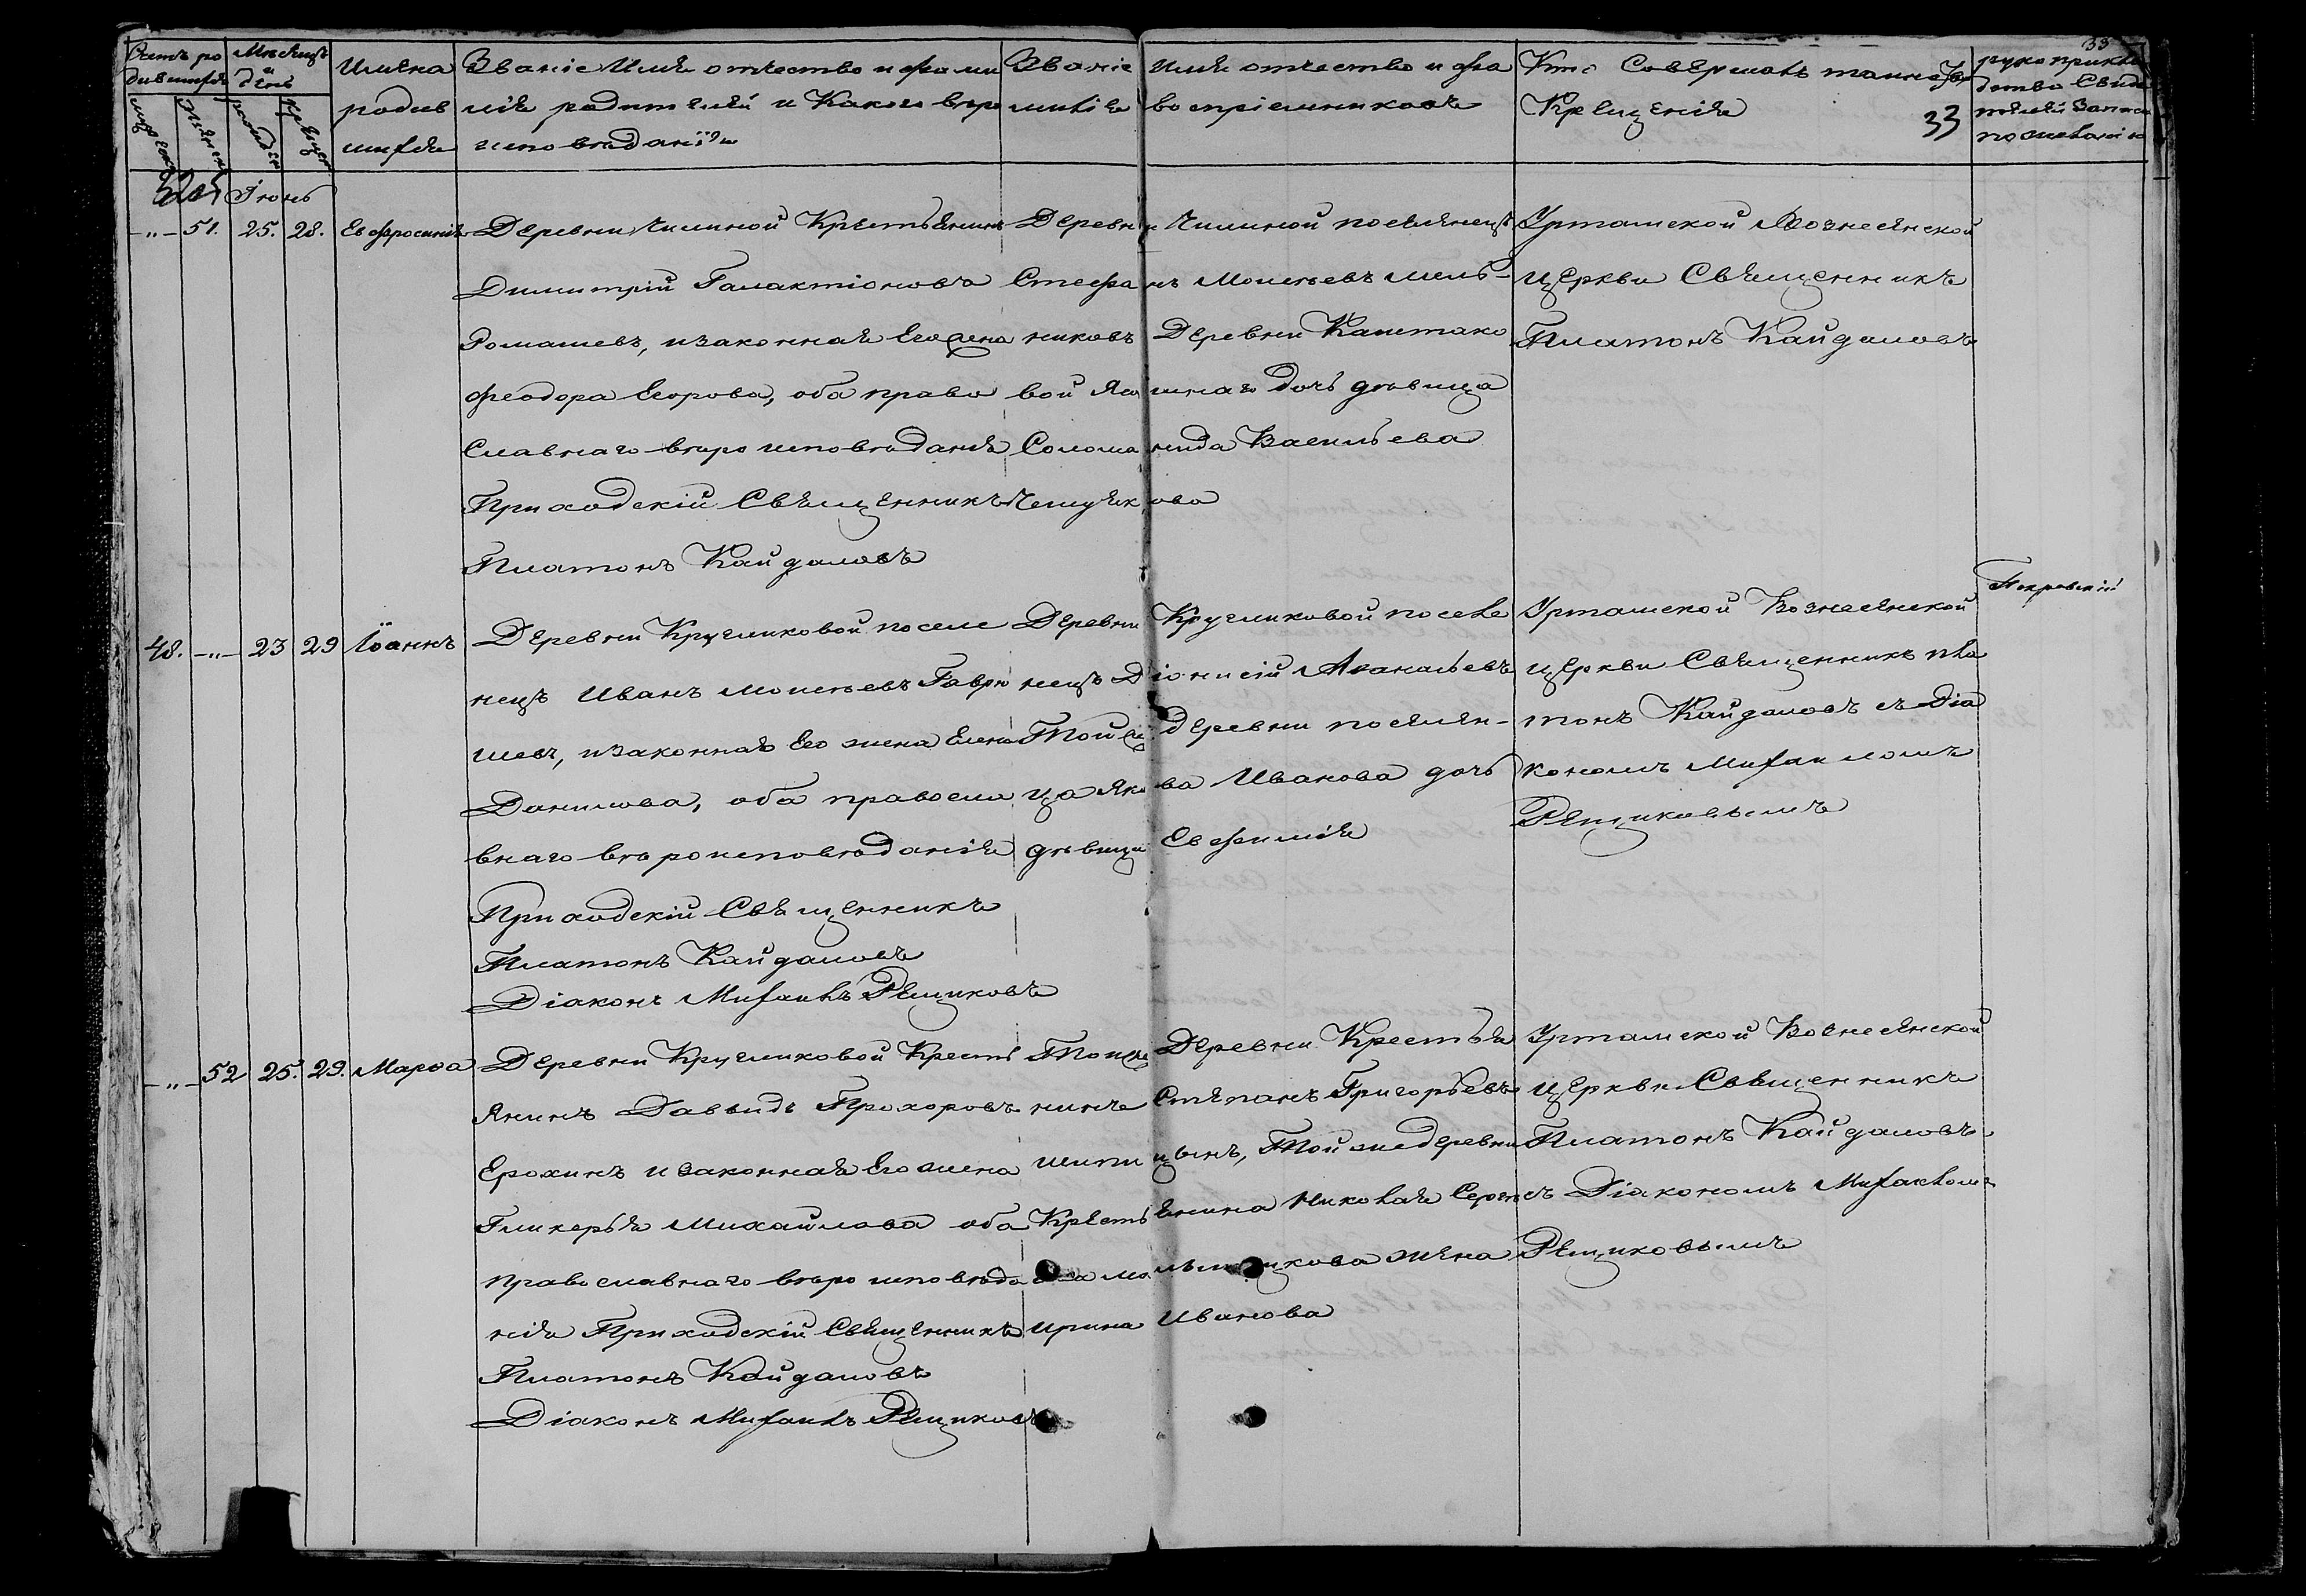 Счетъ родившихся
Мѣсяцъ и день
Имена родившихся
Званіе Имя отчество и фамилія родителей и Какого вѣроисповѣданія
Званіе Имя отчество и фамилія воспріемниковъ
Кто Совершалъ таинство Крещенія
рукоприкладство Свидѣтелей Записи по желанію
33
33
Іюнь
-„- 51. 25. 28. Евфросинія
Деревни Чилиной Крестьянинъ
Димитрій Галактіоновъ
Ромашевъ, и законная Его жена
Феодора Егорова, оба право
Славнаго вѣроисповѣданія
Приходскій Священникъ
Платонъ Кайдаловъ
Деревни Чилиной поселенецъ
Стефанъ Моисѣевъ Мель-
никовъ Деревни Каштако
вой Ям дочь дѣвица
Соломанида Васильева
Урташской Вознесенской
церкви Священникъ
Платонъ Кайдаловъ
48. -„- 23 29 Іоаннъ
Деревни Кругликовой поселе
нецъ Иванъ Моисѣевъ Гаврю
шевъ, и законная Его жена Елена
Данилова, оба правосла
внаго вѣроисповѣданія
Приходскій Священникъ
Платонъ Кайдаловъ
Діаконъ Михаилъ Рещиковъ
Деревни Кругликовой поселе
нецъ Діонисій Аѳанасьевъ
Той же деревни поселен-
ца Якова Иванова дочь
дѣвица Евфимія
Урташской Вознесенской
церкви Священникъ Пла
тонъ Кайдаловъ съ Діа
кономъ Михаиломъ
Рещиковымъ
Покровскій
-„- 52 25. 29. Марѳа
Деревни Кругликовой Кресть
янинъ Даввидъ Прохоровъ
Ерохинъ и законная Его жена
Гликерья Михайлова оба
православнаго вѣроисповѣда
нія Приходскій Священникъ
Платонъ Кайдаловъ
Діаконъ Михаилъ Рещиковъ
Той же Деревни Крестья
нинъ Степанъ Григорьевъ
Шипицынъ, Той же деревни
Крестьянина Николая
жена
Ирина Иванова
Урташской Вознесенской
церкви Священникъ
Платонъ Кайдаловъ
съ Діакономъ Михаиломъ
Рещиковымъ